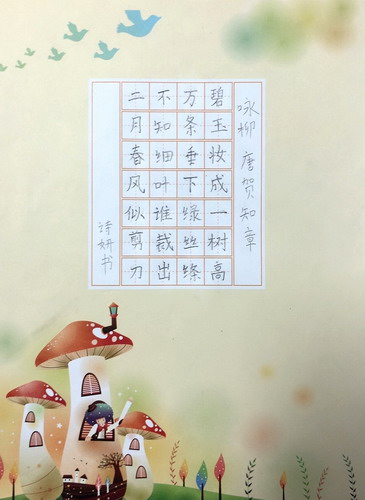 咏柳 唐 贺知章
碧玉妆成一树高
万条垂下绿丝绦
不知细叶谁裁出
二月春风似剪刀
诗妍书